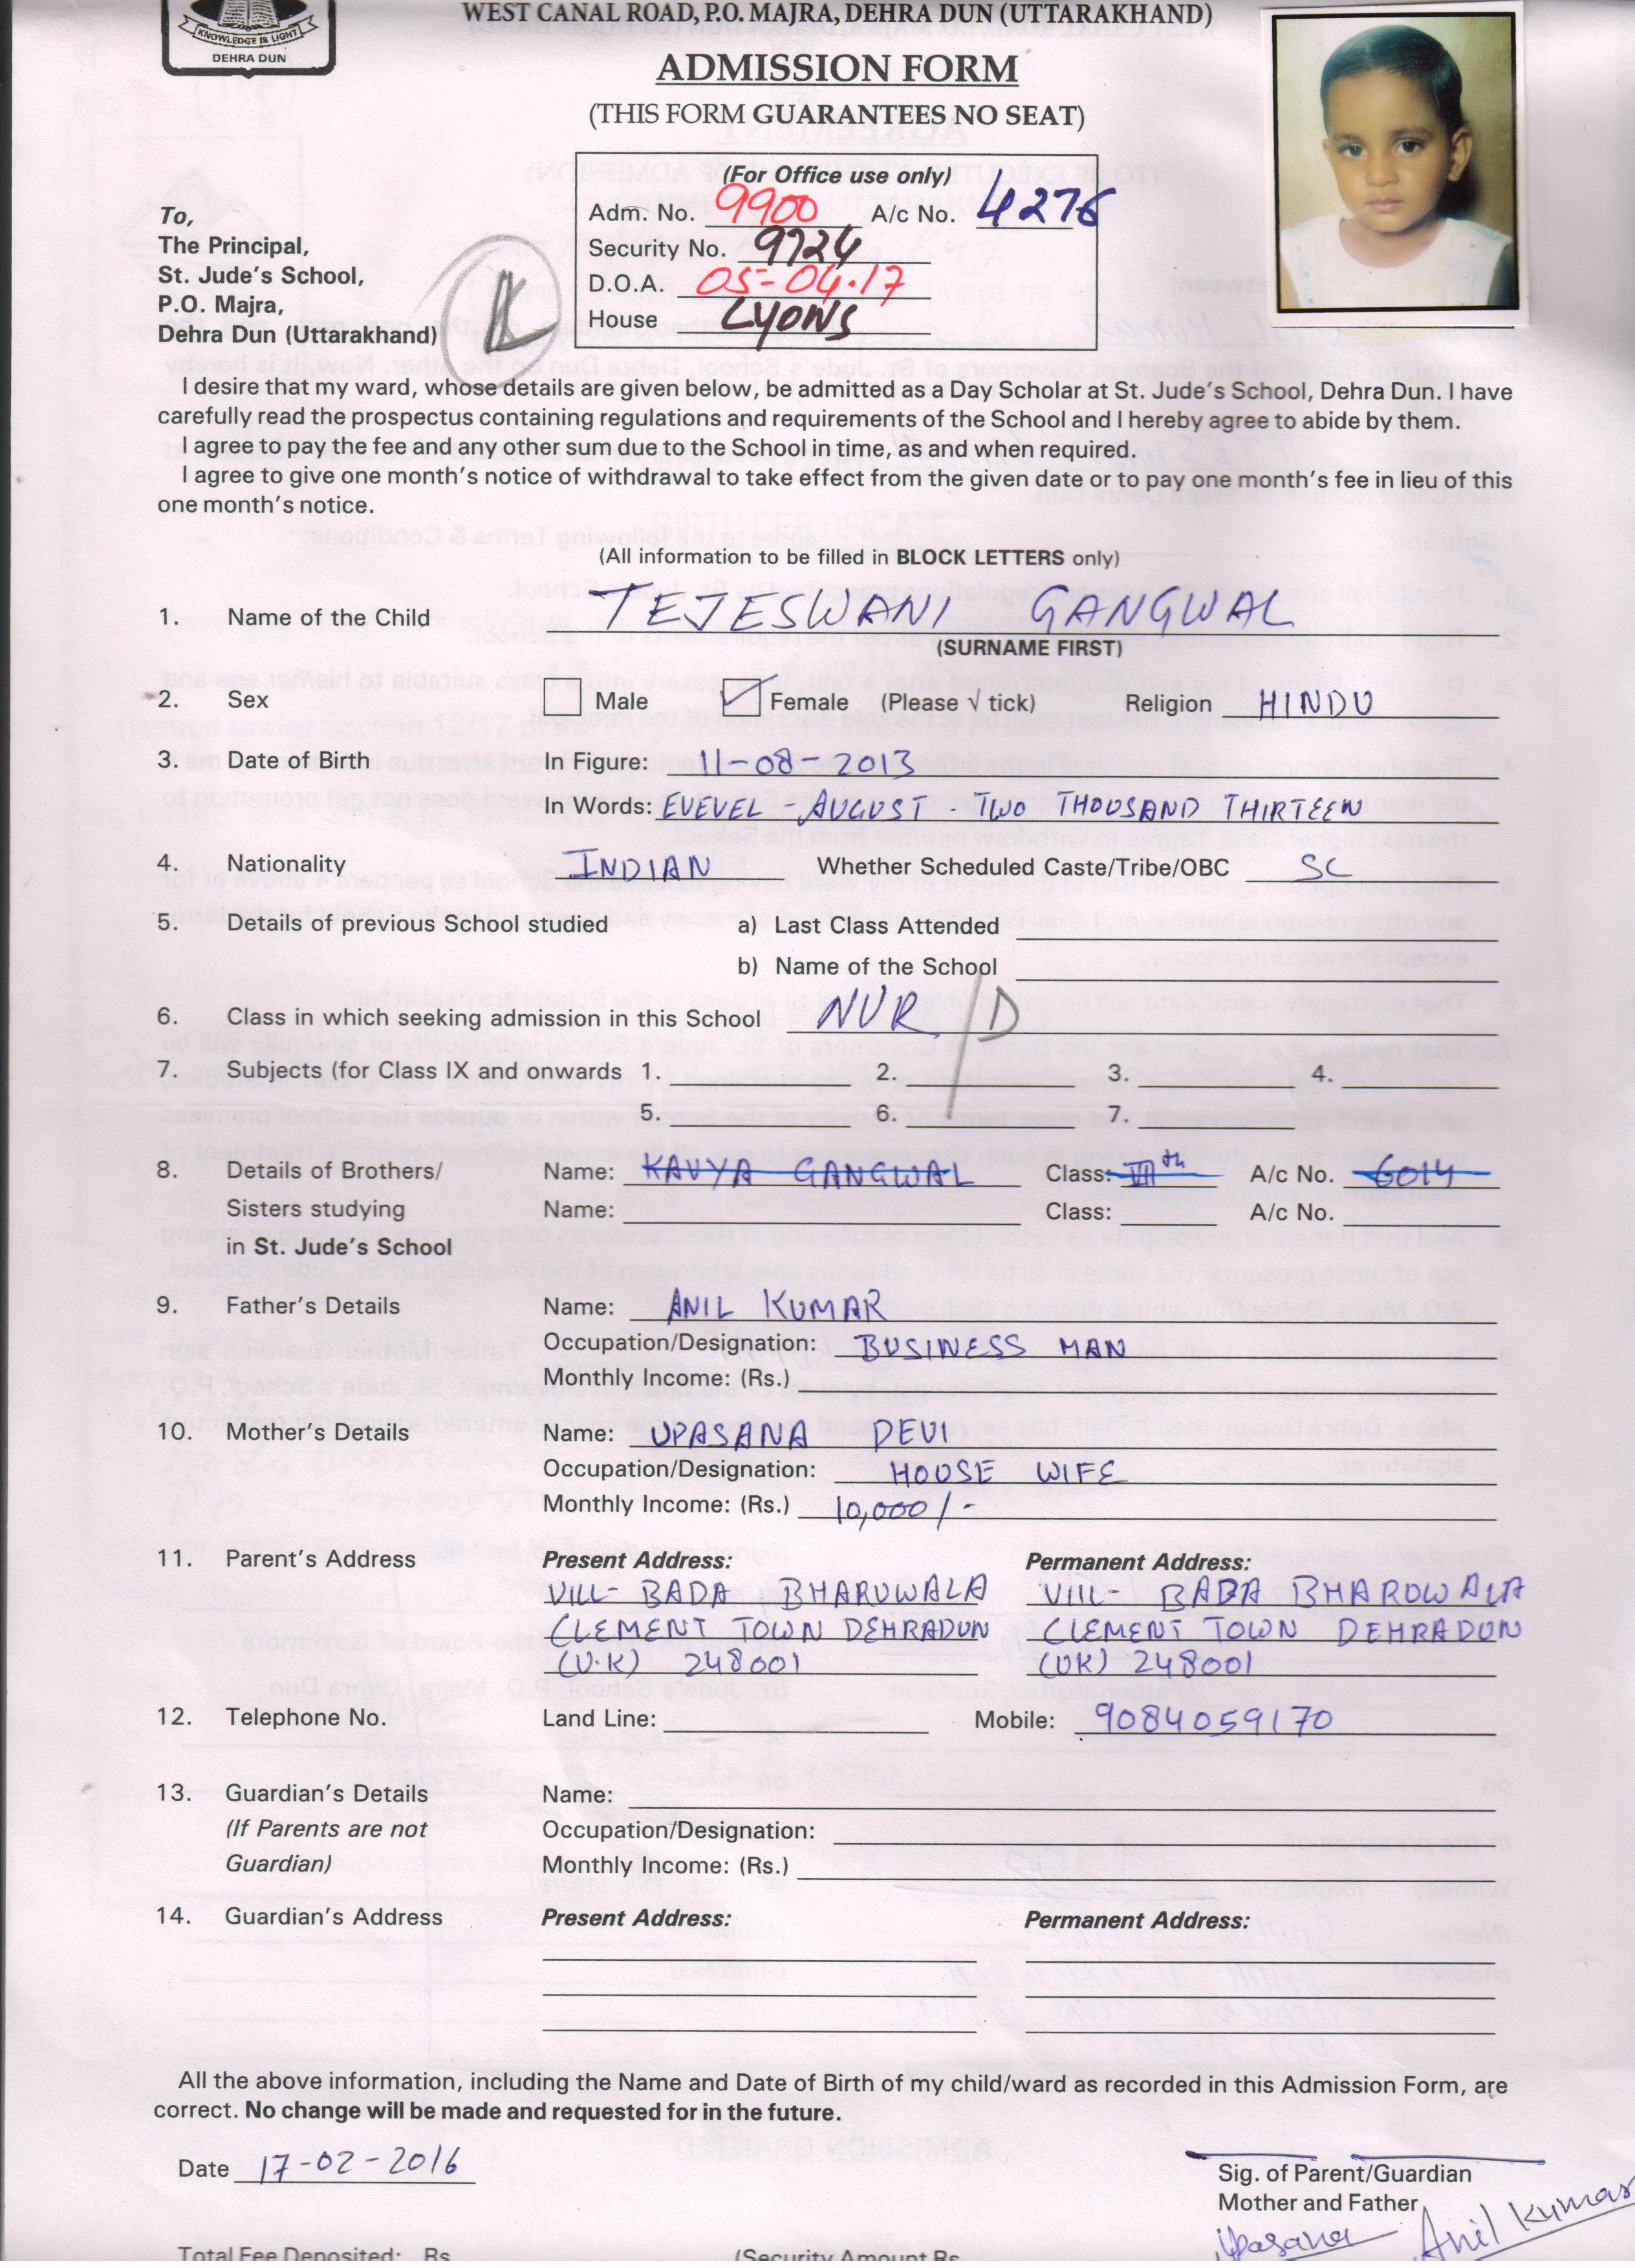 KNOWLEDGE IS LIGHT
DEHRA DUN
WEST CANAL ROAD, P.O. MAJRA, DEHRA DUN (UTTARAKHAND)
ADMISSION FORM
(THIS FORM GUARANTEES NO SEAT)
(For Office use only)
Adm. No. 9900 A/c No. 4276
Security No. 9724
D.O.A. 05-04-17
House LYONS
To,
The Principal,
St. Jude's School,
P.O. Majra,
Dehra Dun (Uttarakhand)
I desire that my ward, whose details are given below, be admitted as a Day Scholar at St. Jude's School, Dehra Dun. I have
carefully read the prospectus containing regulations and requirements of the School and I hereby agree to abide by them.
I agree to pay the fee and any other sum due to the School in time, as and when required.
I agree to give one month's notice of withdrawal to take effect from the given date or to pay one month's fee in lieu of this
one month's notice.
(All information to be filled in BLOCK LETTERS only)
1. Name of the Child TEJESWANI GANGWAL
(SURNAME FIRST)
2. Sex Male Female (Please √ tick) Religion HINDU
3. Date of Birth In Figure: 11-08-2013
In Words: EVEVEL - AUGUST - TWO THOUSAND THIRTEEN
4. Nationality INDIAN Whether Scheduled Caste/Tribe/OBC SC
5. Details of previous School studied a) Last Class Attended
b) Name of the School
6. Class in which seeking admission in this School NUR / D
7. Subjects (for Class IX and onwards 1. 2. 3. 4.
5. 6. 7.
8. Details of Brothers/ Name: KAVYA GANGWAL Class: VIIth A/c No. 6014
Sisters studying Name: Class: A/c No.
in St. Jude's School
9. Father's Details Name: ANIL KUMAR
Occupation/Designation: BUSINESS MAN
Monthly Income: (Rs.)
10. Mother's Details Name: UPASANA DEVI
Occupation/Designation: HOUSE WIFE
Monthly Income: (Rs.) 10,000/-
11. Parent's Address Present Address: Permanent Address:
VILL- BADA BHARUWALA VILL- BADA BHAROWALA
CLEMENT TOWN DEHRADUN CLEMENT TOWN DEHRADUN
(U.K) 248001 (UK) 248001
12. Telephone No. Land Line: Mobile: 9084059170
13. Guardian's Details Name:
(If Parents are not Occupation/Designation:
Guardian) Monthly Income: (Rs.)
14. Guardian's Address Present Address: Permanent Address:
All the above information, including the Name and Date of Birth of my child/ward as recorded in this Admission Form, are
correct. No change will be made and requested for in the future.
Date 17-02-2016
Sig. of Parent/Guardian
Mother and Father
Upasana Anil Kumar
Total Fee Deposited: Rs. (Security Amount Rs.